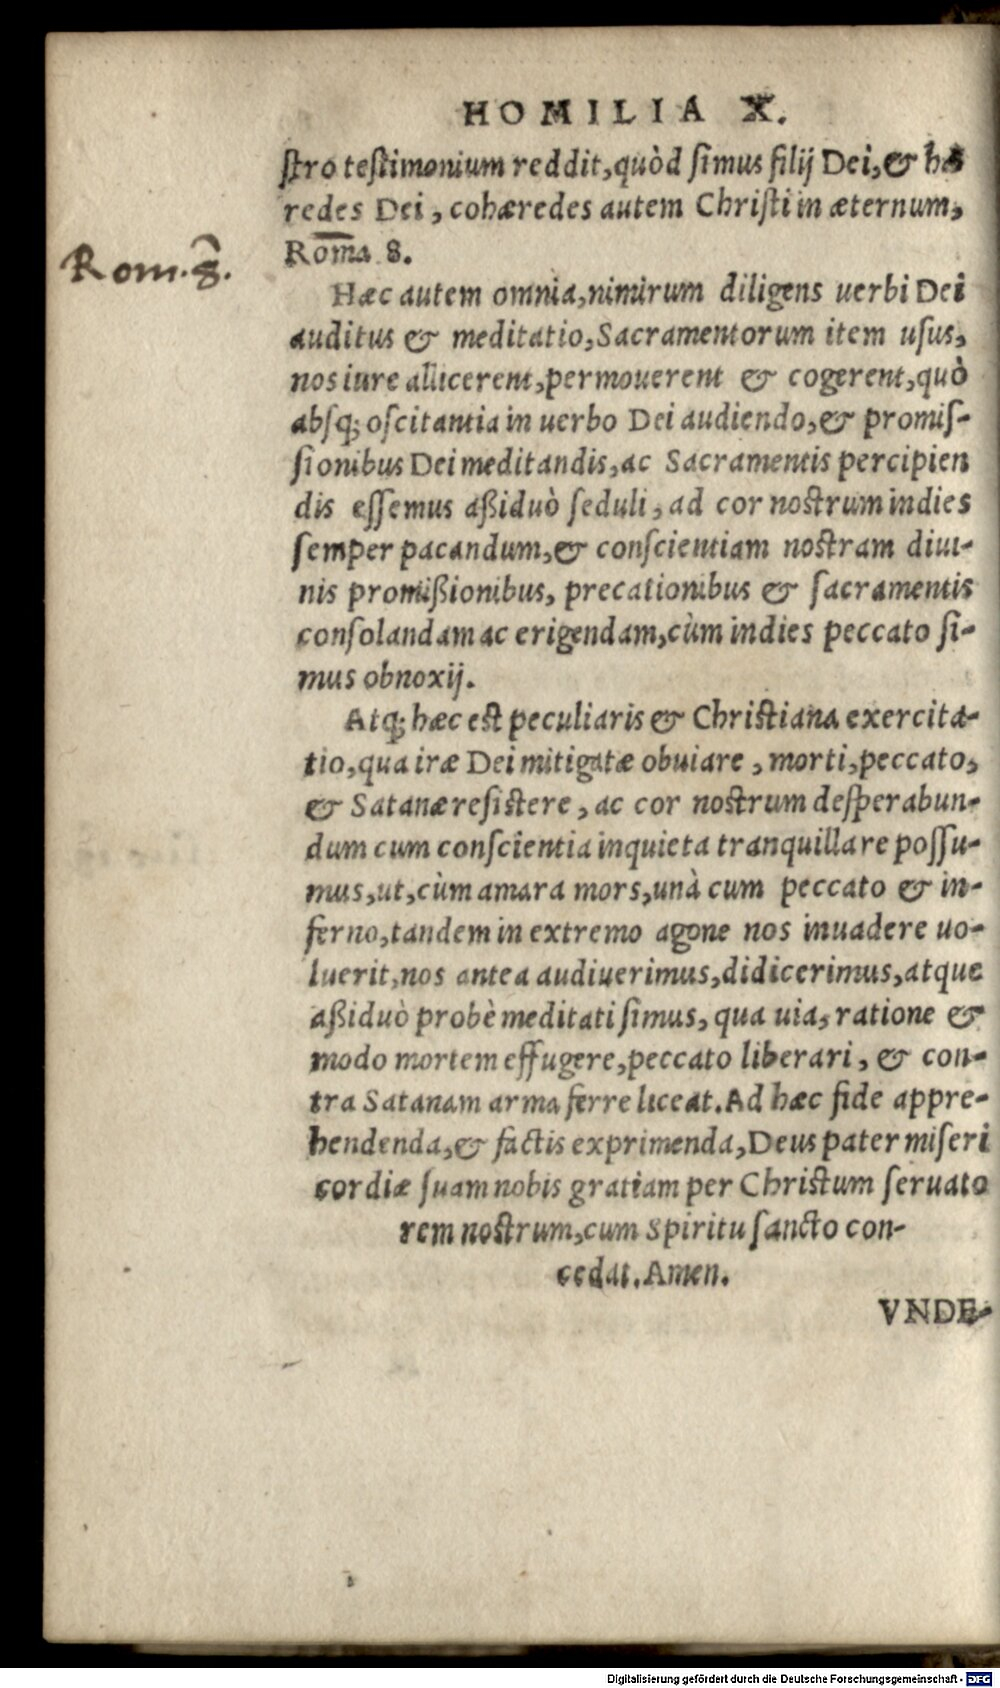 HOMILIA X.
stro testimonium reddit, quòd simus filij Dei, & hæ
redes Dei, cohæredes autem Christi in æternum,
Roma 8.
Rom. 8.
Hæc autem omnia, nimirum diligens uerbi Dei
auditus & meditatio, Sacramentorum item usus,
nos iure allicerent, permouerent & cogerent, quò
absq; oscitantia in uerbo Dei audiendo, & promis-
sionibus Dei meditandis, ac Sacramentis percipien
dis essemus aßiduò seduli, ad cor nostrum indies
semper pacandum, & conscientiam nostram diui-
nis promißionibus, precationibus & sacramentis
consolandam ac erigendam, cùm indies peccato si-
mus obnoxij.
Atq; hæc est peculiaris & Christiana exercita-
tio, qua iræ Dei mitigatæ obuiare, morti, peccato,
& Satanæ resistere, ac cor nostrum desperabun-
dum cum conscientia inquieta tranquillare possu-
mus, ut, cùm amara mors, unà cum peccato & in-
ferno, tandem in extremo agone nos inuadere uo-
luerit, nos antea audiuerimus, didicerimus, atque
aßiduò probè meditati simus, qua uia, ratione &
modo mortem effugere, peccato liberari, & con-
tra Satanam arma ferre liceat. Ad hæc fide appre-
hendenda, & factis exprimenda, Deus pater miseri
cordiæ suam nobis gratiam per Christum seruato
rem nostrum, cum Spiritu sancto con-
cedat. Amen.
VNDE-
Digitalisierung gefördert durch die Deutsche Forschungsgemeinschaft - DFG